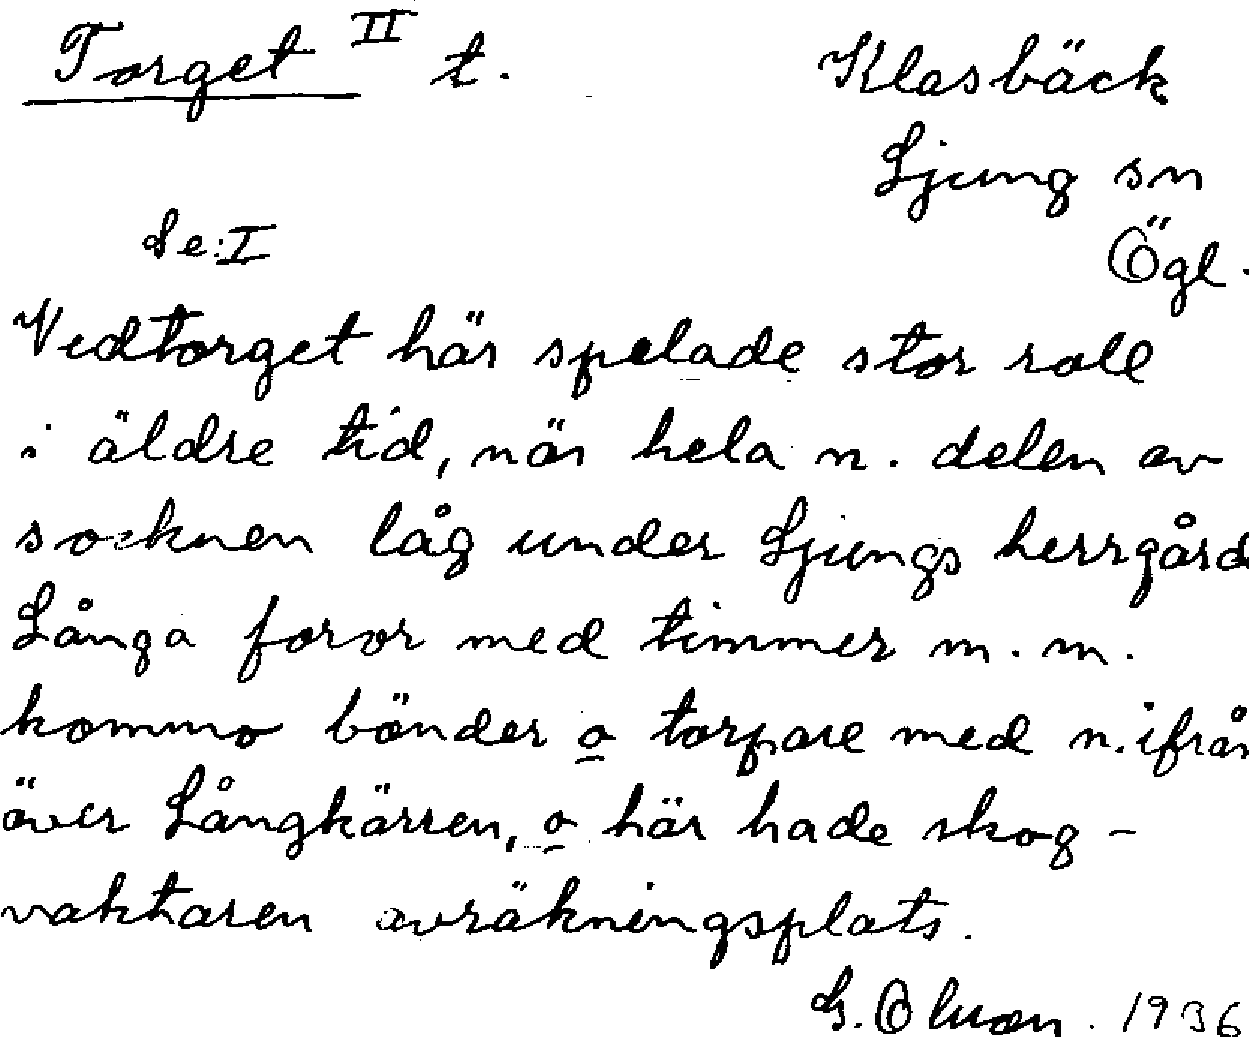 Torget II t. Klasbäck
Ljung sn
Se: I Ögl.
Vedtorget här spelade stor roll
i äldre tid, när hela n. delen av
socknen låg under Ljungs herrgård
Långa foror med timmer m.m.
kommo bönder o torpare med n. ifrån
över Långkärren, o här hade skog-
vaktaren avräkningsplats.
G. Olsson. 1936